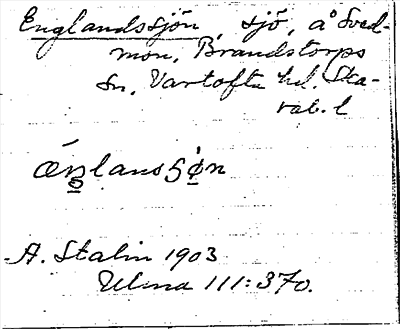 Englandssjön, sjö, å Sved-
mon, Brandstorps
sn, Vartofta hd. Ska-
rab. l
A. Stalin 1903
Ulma 111:370.